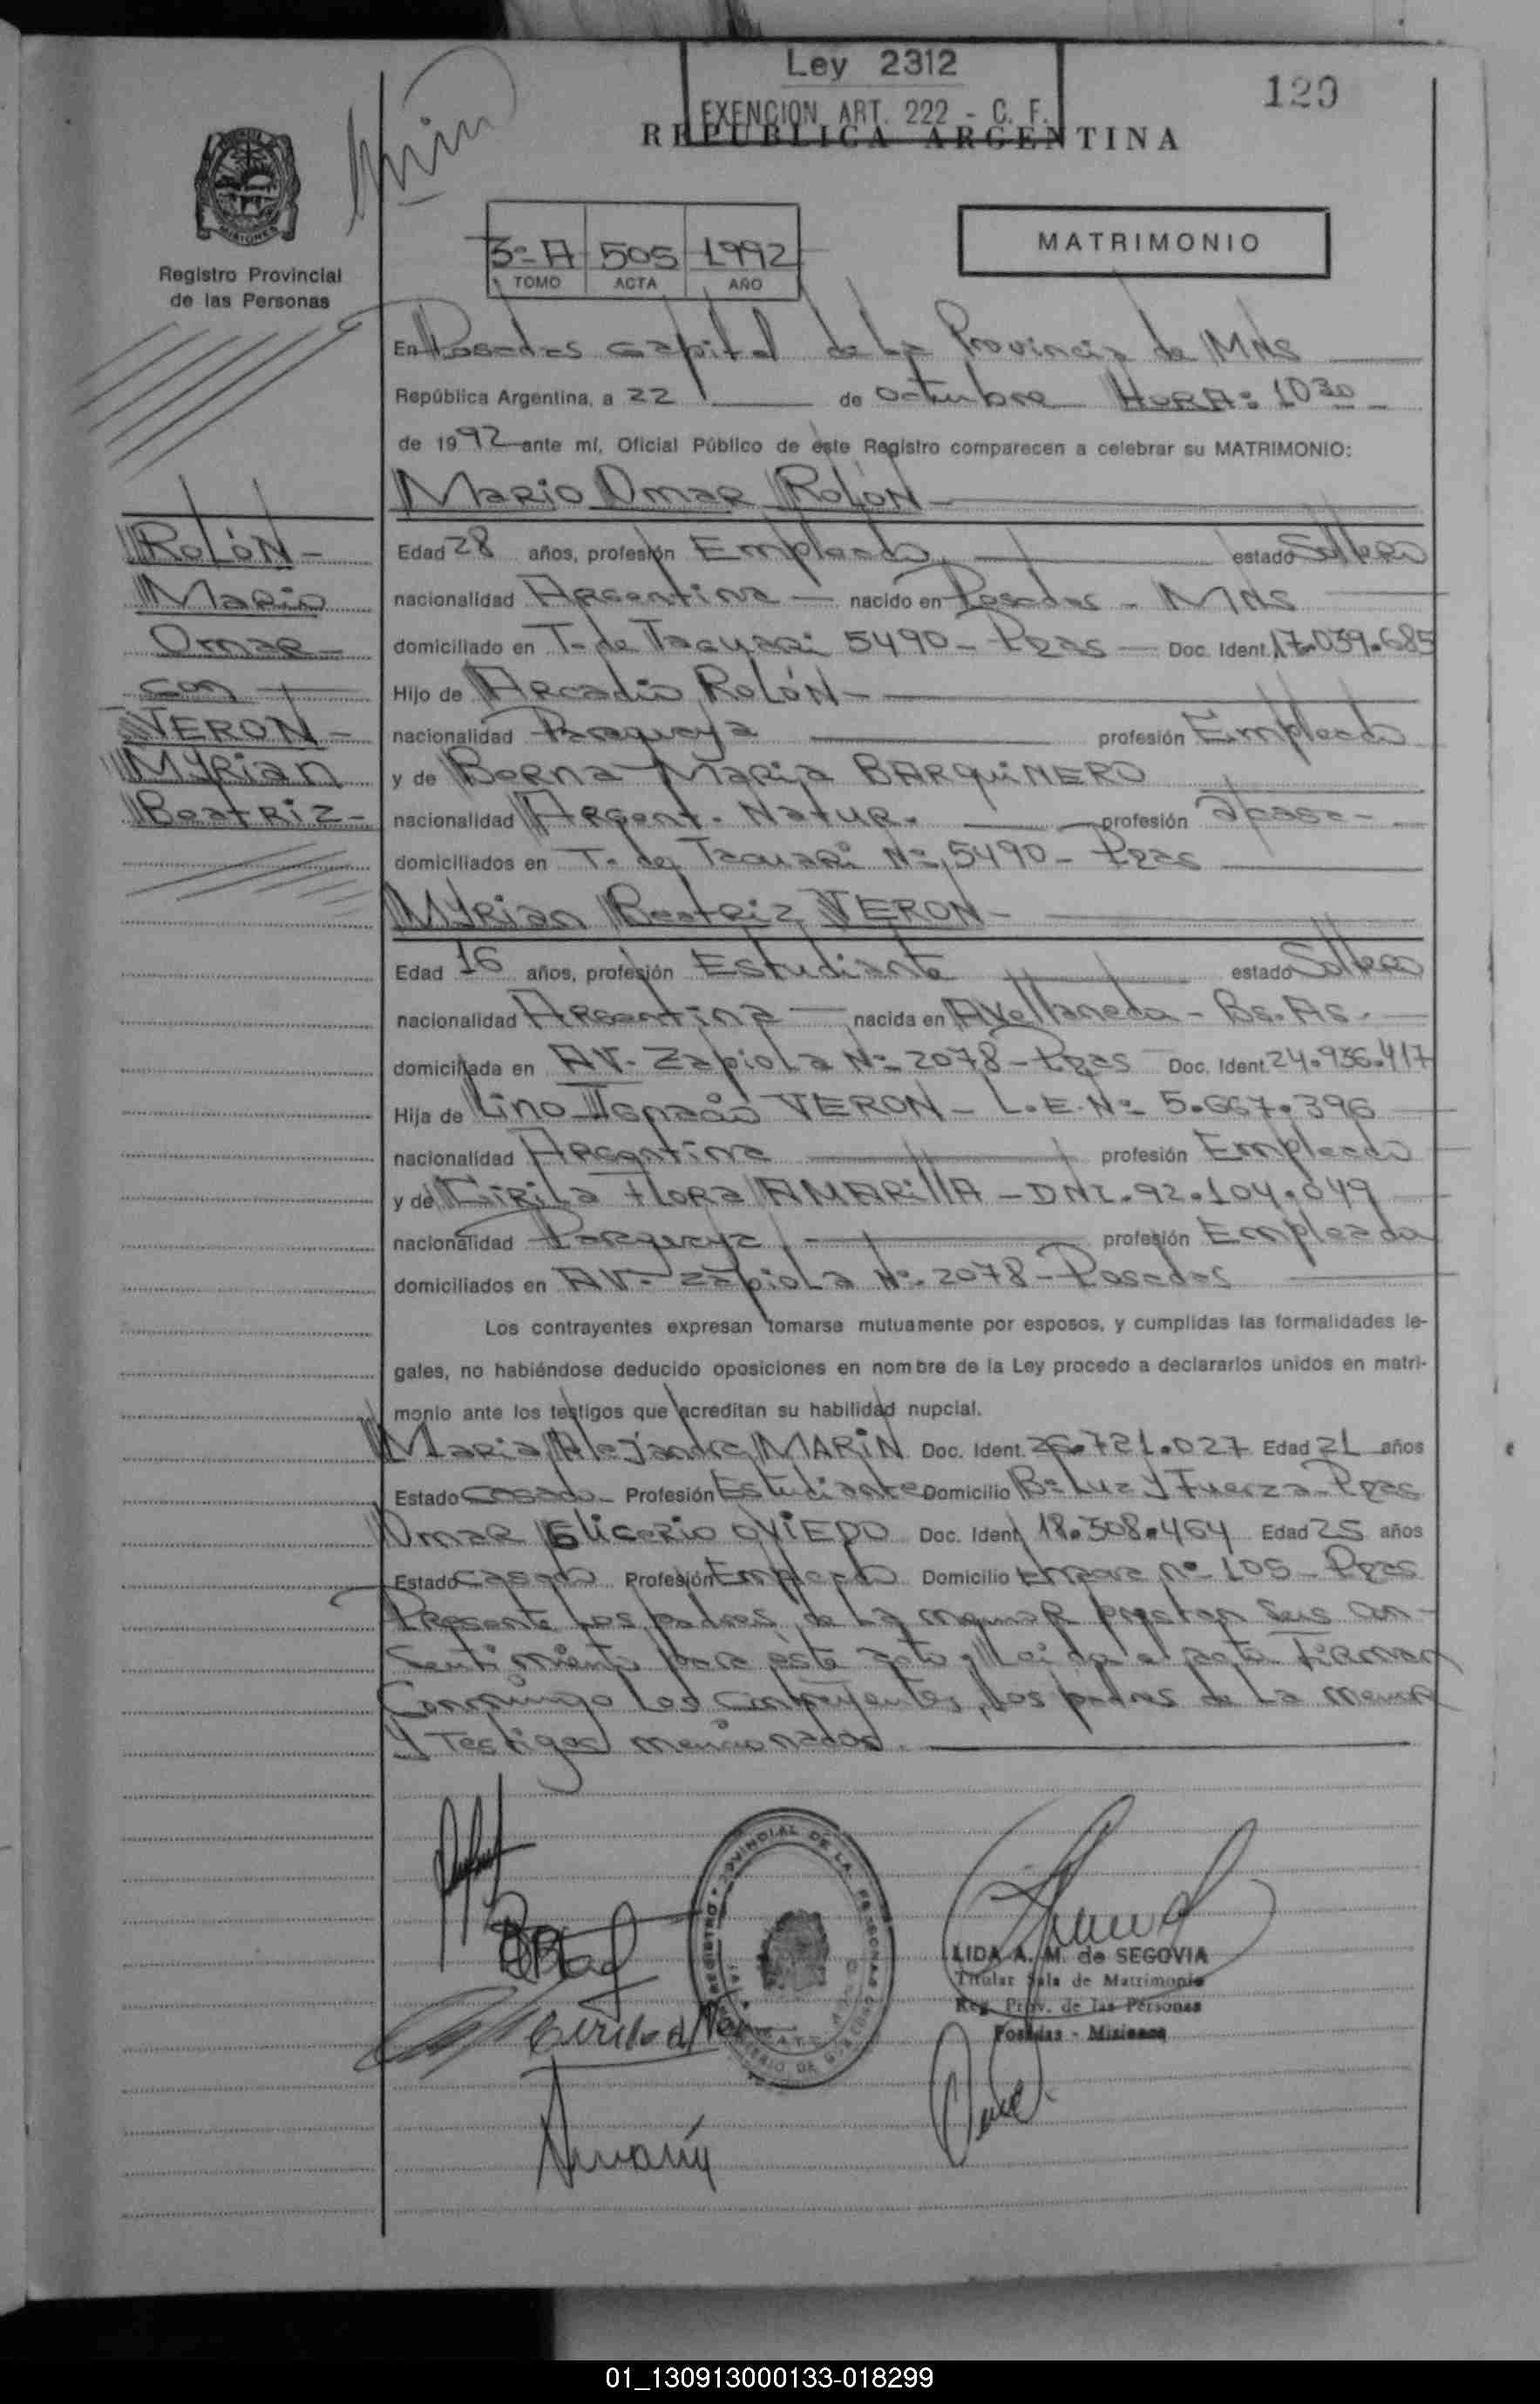 Ley 2312
EXENCION ART. 222 - C. F.
129
REPUBLICA ARGENTINA
MISIONES
Registro Provincial
de las Personas
3º A 505 1992
TOMO ACTA AÑO
MATRIMONIO
En Posadas capital de la Provincia de MNS
República Argentina, a 22 de octubre HORA: 10 30
de 1992 ante mí, Oficial Público de este Registro comparecen a celebrar su MATRIMONIO:
Mario Omar Rolón
Rolón
Mario
Omar
con
VERON
Myrian
Beatriz
Edad 28 años, profesión Empleado estado Soltero
nacionalidad Argentina nacido en Posadas - MNS
domiciliado en T. de Tacuari 5490 - Pdas Doc. Ident. 17.039.685
Hijo de Arcadio Rolón
nacionalidad Paraguaya profesión Empleado
y de Berna Maria BARQUINERO
nacionalidad Argent. Natur. profesión
domiciliados en T. de Tacuari Nº 5490 - Pdas
Myrian Beatriz VERON
Edad 16 años, profesión Estudiante estado Soltera
nacionalidad Argentina nacida en Avellaneda - Bs. As.
domiciliada en AV. Zapiola Nº 2078 - Pdas Doc. Ident. 24.936.417
Hija de Lino Ignacio VERON - L.E. Nº 5.667.396
nacionalidad Argentina profesión Empleado
y de Cirila Flora AMARILLA - DNI. 92.104.049
nacionalidad Paraguaya profesión Empleada
domiciliados en AV. Zapiola Nº 2078 - Posadas
Los contrayentes expresan tomarse mutuamente por esposos, y cumplidas las formalidades le-
gales, no habiéndose deducido oposiciones en nombre de la Ley procedo a declararlos unidos en matri-
monio ante los testigos que acreditan su habilidad nupcial.
Maria Alejandra MARIN Doc. Ident. 26.721.027 Edad 21 años
Estado Casado Profesión Estudiante Domicilio Bº Luz y Fuerza - Pdas
Omar Glicerio OVIEDO Doc. Ident. 18.308.464 Edad 25 años
Estado Casado Profesión Empleado Domicilio nº 105 - Pdas
Presente los padres de la menor prestan sus con-
sentimiento para éste acto, Leida el acta Firman
Conmingo los contrayentes, los padres de la menor
y testigos mencionados.
REGISTRO PROVINCIAL DE LAS PERSONAS
LIDA A. M. de SEGOVIA
Titular Sala de Matrimonio
Reg. Prov. de las Personas
Posadas - Misiones
01_130913000133-018299